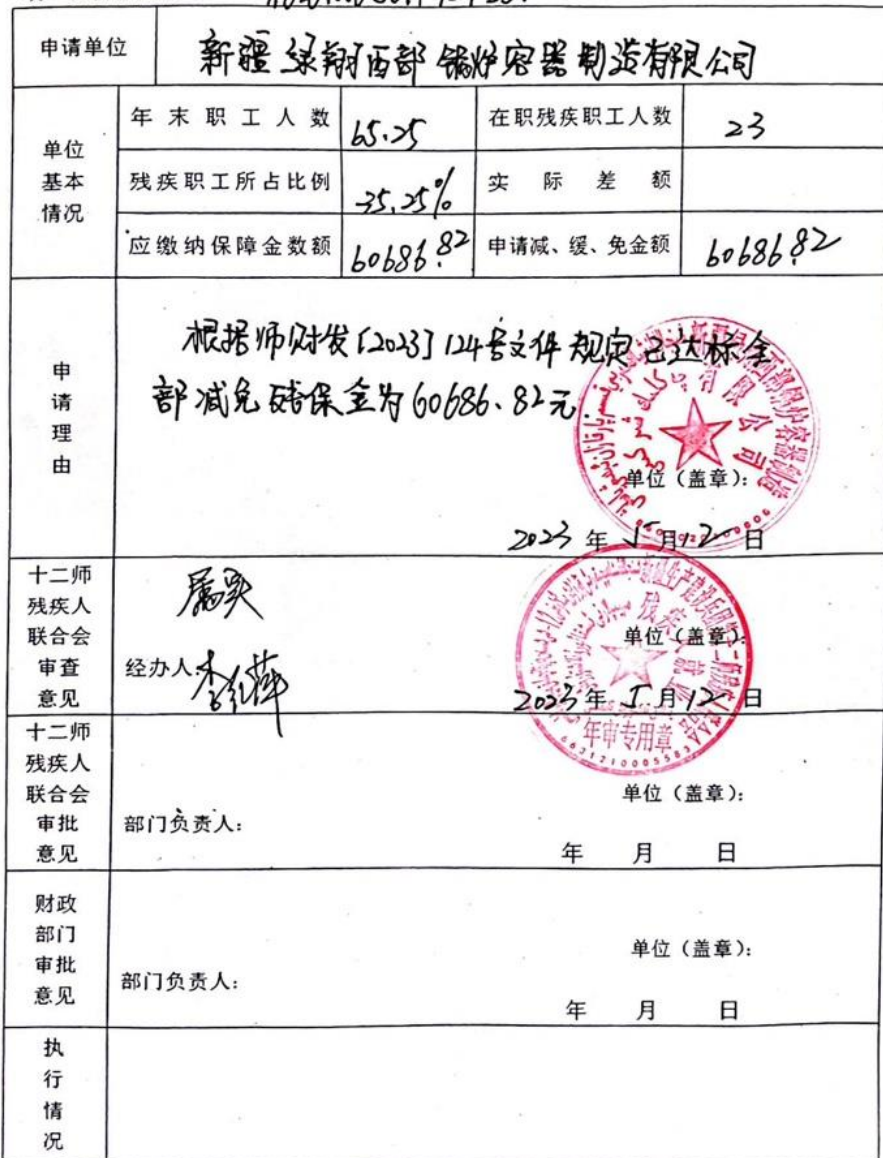 申请单位 新疆绿翔西部锅炉容器制造有限公司
单位基本情况
年末职工人数 65.25 在职残疾职工人数 23
残疾职工所占比例 35.25% 实际差额
应缴纳保障金数额 60686.82 申请减、缓、免金额 60686.82
申请理由
根据师财发[2023]124号文件规定已达标全
部减免残保金为60686.82元.
有限公司
单位（盖章）：
2023年5月12日
十二师残疾人联合会审查意见
属实
单位（盖章）：
经办人：
2023年5月12日
年审专用章
6631210005583
十二师残疾人联合会审批意见
单位（盖章）：
部门负责人：
年 月 日
财政部门审批意见
单位（盖章）：
部门负责人：
年 月 日
执行情况